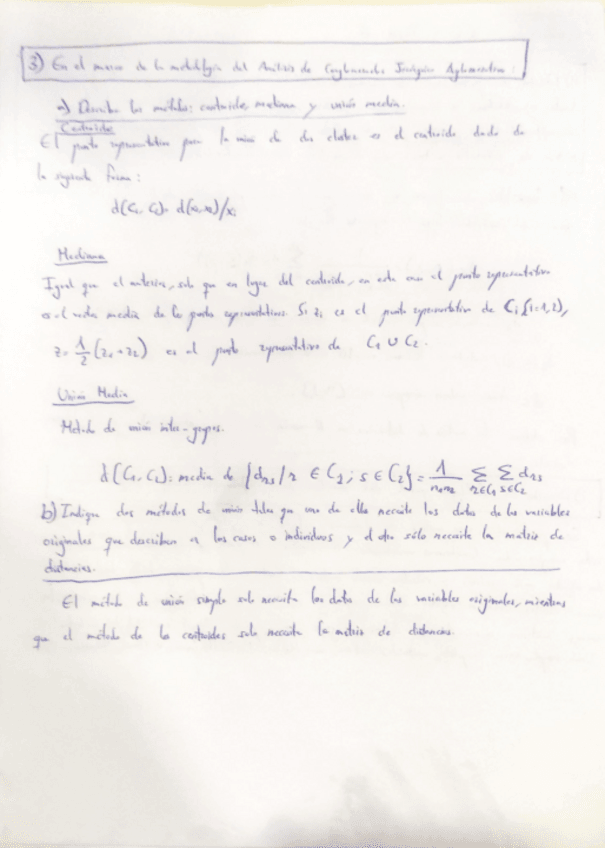 3) En el marco de la metodología del Análisis de Conglomerados Jerárquico Aglomerativo:
a) Describa los métodos: centroide, mediana y unión media.
Centroide
El punto representativo para la unión de dos clusters es el centroide dado de
la siguiente forma:
d(C₁, C₂)= d(x₁,x₂)/x̄ᵢ
Mediana
Igual que el anterior, solo que en lugar del centroide, en este caso el punto representativo
es el media de los puntos representativos. Si zᵢ es el punto representativo de Cᵢ (i=1,2),
z= 1/2 (z₁+z₂) es el punto representativo de C₁ ∪ C₂.
Unión Media
Método de unión inter-grupos.
d(C₁, C₂)= media de {dᵣₛ/r ∈ C₁; s ∈ C₂} = 1/n₁n₂ Σ r∈C₁ Σ s∈C₂ dᵣₛ
b) Indique dos métodos de unión tales que uno de ellos necesite los datos de las variables
originales que describen a los casos o individuos y el otro sólo necesite la matriz de
distancias.
El método de unión simple solo necesita los datos de las variables originales, mientras
que el método de los centroides solo necesita la matriz de distancias.